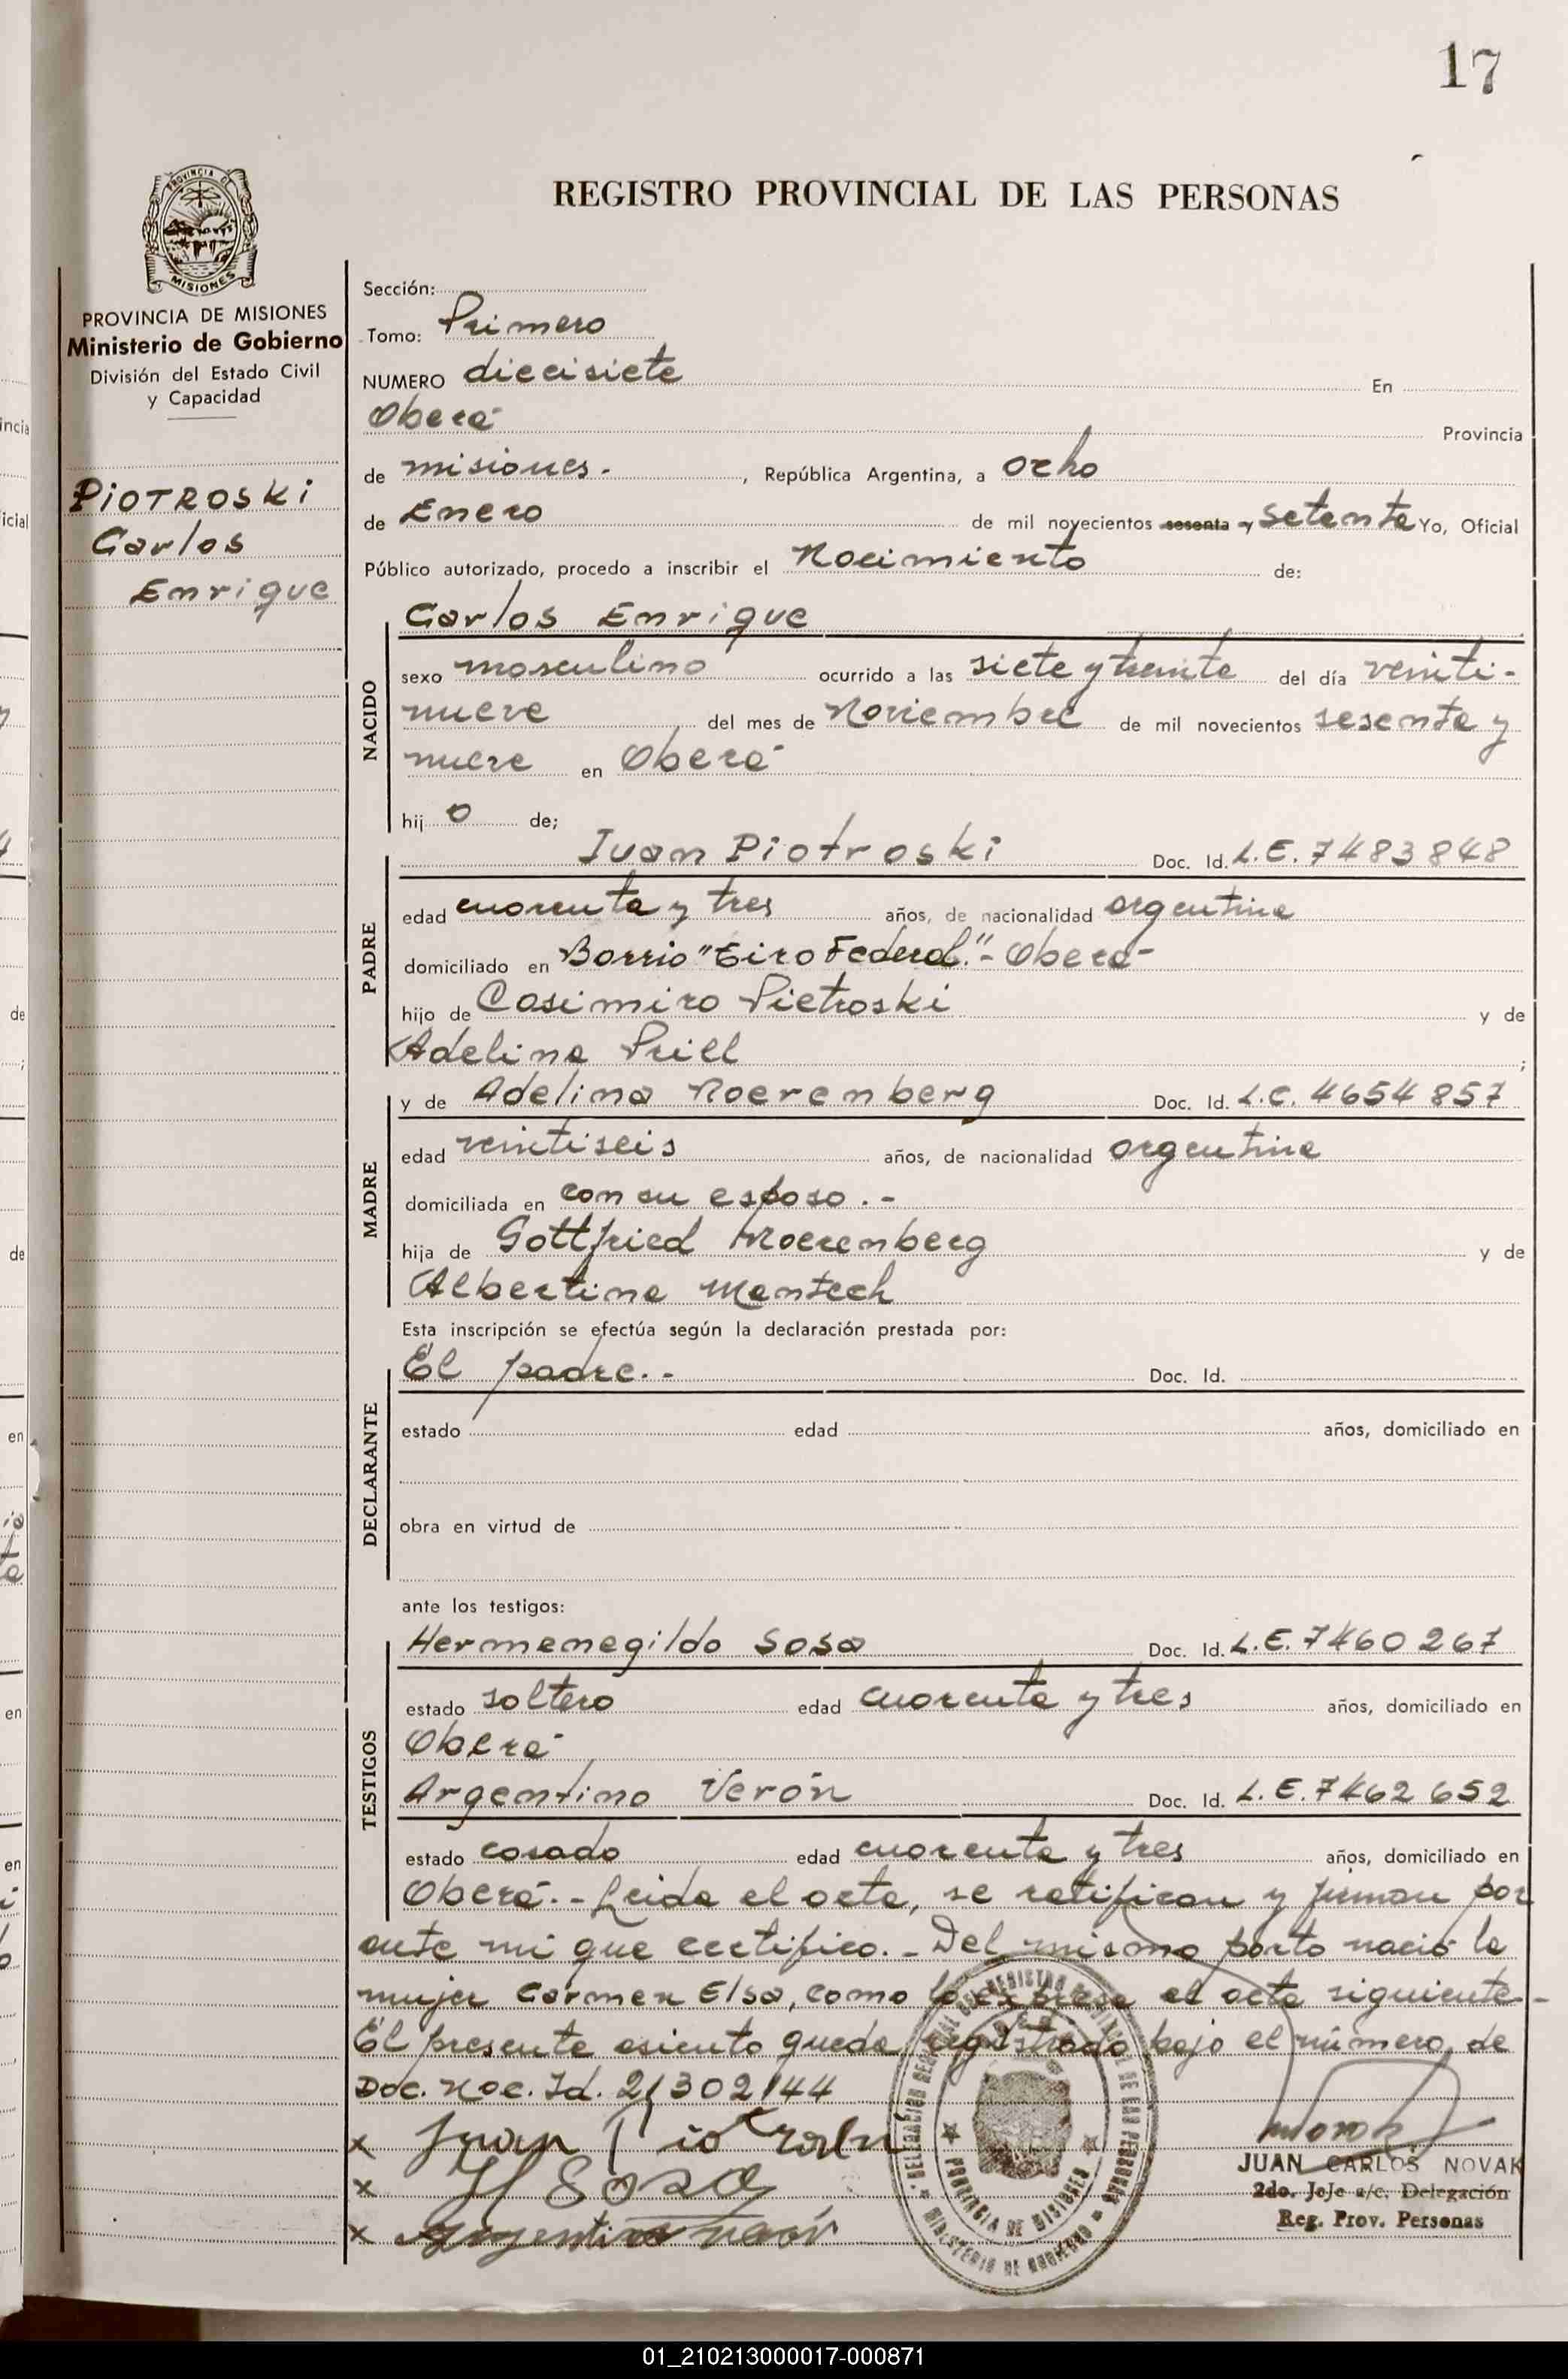 17
PROVINCIA DE
MISIONES
REGISTRO PROVINCIAL DE LAS PERSONAS
PROVINCIA DE MISIONES
Ministerio de Gobierno
División del Estado Civil
y Capacidad
PIOTROSKI
Carlos
Enrique
Sección:
Tomo: Primero
NUMERO diecisiete En
Oberá Provincia
de misiones.-, República Argentina, a ocho
de Enero de mil novecientos sesenta y setenta Yo, Oficial
Público autorizado, procedo a inscribir el Nacimiento de:
Carlos Enrique
NACIDO
sexo masculino ocurrido a las siete y treinta del día veinti-
nueve del mes de Noviembre de mil novecientos sesenta y
nueve en Oberá
hijo de;
Juan Piotroski Doc. Id. L.E. 7483848
PADRE
edad cuarenta y tres años, de nacionalidad argentina
domiciliado en Barrio "Tiro Federal".- Oberá-
hijo de Casimiro Pietroski y de
Adelina Prill ;
y de Adelina Noerenberg Doc. Id. L.C. 4654857
MADRE
edad veintiseis años, de nacionalidad argentina
domiciliada en con su esposo.-
hija de Gottfried Noerenberg y de
Albertina Mantech
Esta inscripción se efectúa según la declaración prestada por:
El padre.- Doc. Id.
DECLARANTE
estado edad años, domiciliado en
obra en virtud de
ante los testigos:
Hermenegildo Sosa Doc. Id. L.E. 7460267
TESTIGOS
estado soltero edad cuarenta y tres años, domiciliado en
Oberá
Argentino Verón Doc. Id. L.E. 7462652
estado casado edad cuarenta y tres años, domiciliado en
Oberá.- Leida el acta, se ratifican y firman por
ante mi que certifico.- Del mismo parto nació la
mujer Carmen Elsa, como lo expresa el acta siguiente-
El presente asiento queda registrado bajo el número de
Doc. Nac. Id. 21302144
x Juan Piotroski
x H Sosa
x Argentino Verón
PROVINCIA DE MISIONES
MINISTERIO DE GOBIERNO
JUAN CARLOS NOVAK
2do. Jefe a/c. Delegación
Reg. Prov. Personas
01_210213000017-000871